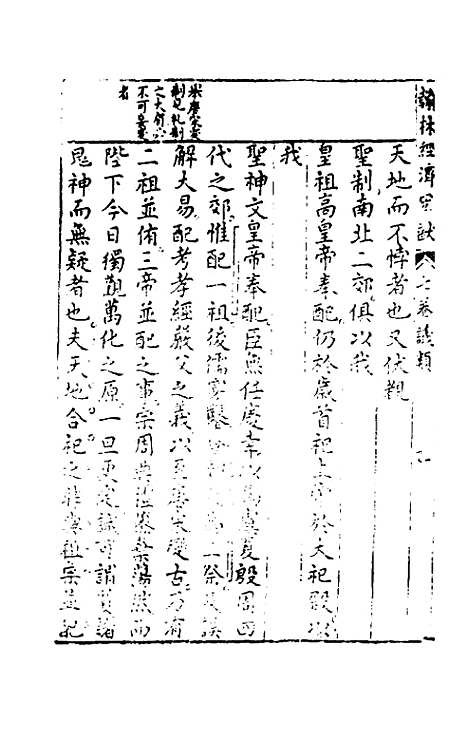 翰林經濟宏猷
七卷議類
天地而不悖者也又伏覩
聖制南北二郊俱以我
皇祖高皇帝奉配仍於歲首祀上帝於大祀殿以
我
聖神文皇帝奉配臣無任慶幸以為虞夏殷周四
代之郊惟配一祖後儒穿鑿為二祭誤
解大易配考孝經嚴父之義以至唐宋變古乃有
二祖並侑三帝並配之事宗周典禮蕩然而
陛下今日獨觀萬化之原一旦更定誠可謂質諸
鬼神而無疑者也夫天地合祀之非與祖宗並配
制見禮制
之大
不可
者